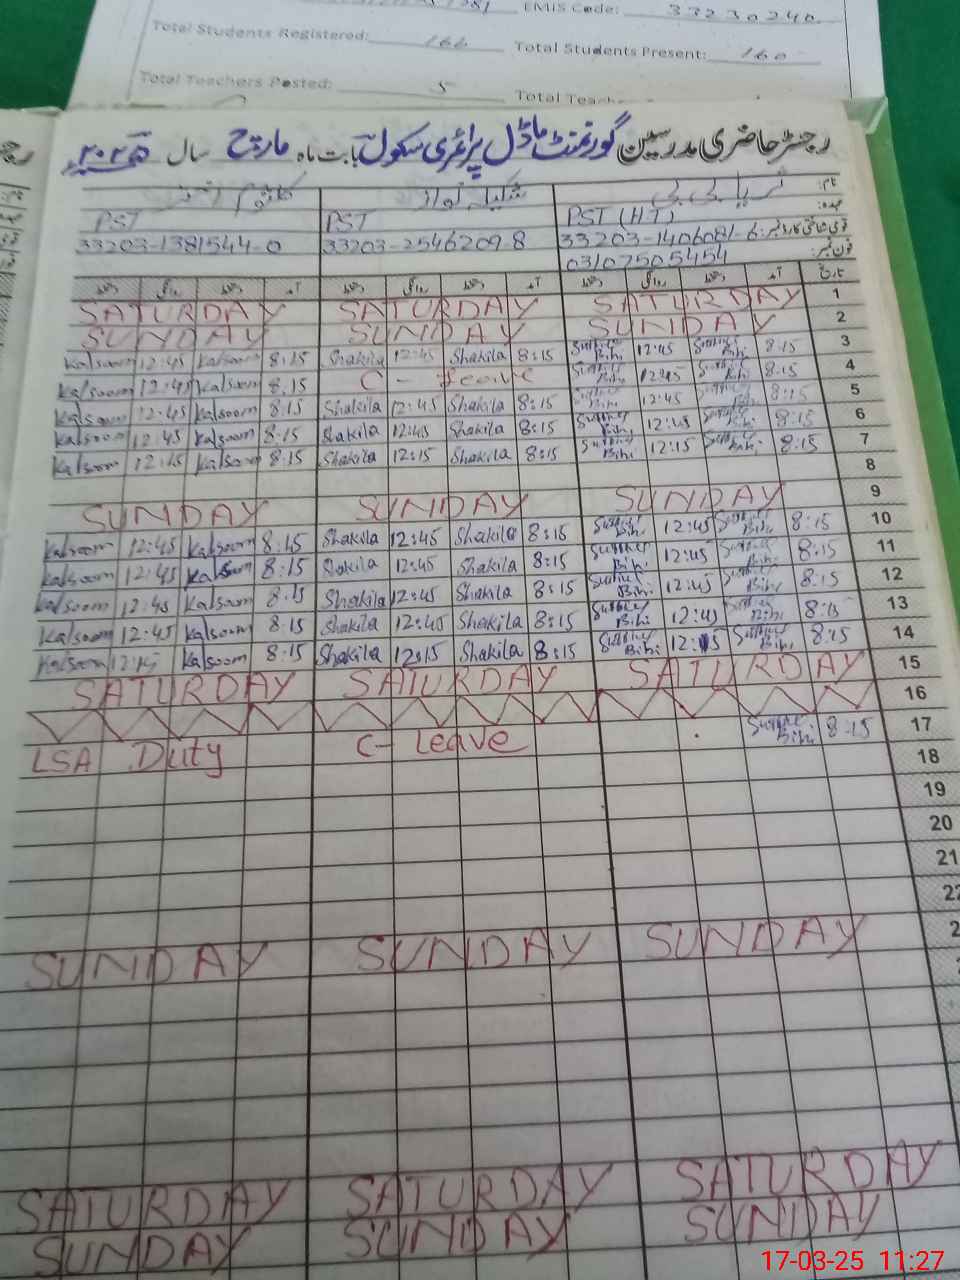 EMIS Code: 33230240
Total Students Registered: 166 Total Students Present: 160
Total Teachers Posted: 5 Total Teach
رجسٹر حاضری مدرسین گورنمنٹ ماڈل پرائمری سکول بابت ماہ مارچ سال ۲۰۲۵
نام: ثریا بی بی شکیلہ نواز کلثوم
عہدہ: PST (H.T) PST PST
قومی شناختی کارڈ نمبر: 33203-1406081-6 33203-2546209-8 33203-1381544-0
فون نمبر: 03107505454
تاریخ آمد دستخط روانگی دستخط آمد دستخط روانگی دستخط آمد دستخط روانگی دستخط
SATURDAY SATURDAY SATURDAY 1
SUNDAY SUNDAY SUNDAY 2
Kalsoom 12:45 Kalsoom 8:15 Shakila 12:45 Shakila 8:15 Bibi 12:45 Bibi 8:15 3
Kalsoom 12:45 Kalsoom 8:15 C - Leave Bibi 12:45 Bibi 8:15 4
Kalsoom 12:45 Kalsoom 8:15 Shakila 12:45 Shakila 8:15 Bibi 12:45 Bibi 8:15 5
Kalsoom 12:45 Kalsoom 8:15 Shakila 12:45 Shakila 8:15 Bibi 12:45 Bibi 8:15 6
Kalsoom 12:15 Kalsoom 8:15 Shakila 12:15 Shakila 8:15 Bibi 12:15 Bibi 8:15 7
8
SUNDAY SUNDAY SUNDAY 9
Kalsoom 12:45 Kalsoom 8:15 Shakila 12:45 Shakila 8:15 Bibi 12:45 8:15 10
Kalsoom 12:45 Kalsoom 8:15 Shakila 12:45 Shakila 8:15 Bibi 12:45 8:15 11
Kalsoom 12:45 Kalsoom 8:15 Shakila 12:45 Shakila 8:15 Bibi 12:45 8:15 12
Kalsoom 12:45 Kalsoom 8:15 Shakila 12:45 Shakila 8:15 Bibi 12:45 Bibi 8:15 13
Kalsoom 12:15 Kalsoom 8:15 Shakila 12:15 Shakila 8:15 Bibi 12:15 Bibi 8:15 14
SATURDAY SATURDAY SATURDAY 15
16
LSA Duty C- Leave Bibi 8:15 17
18
19
20
21
22
SUNDAY SUNDAY SUNDAY 2
SATURDAY SATURDAY SATURDAY
SUNDAY SUNDAY SUNDAY
17-03-25 11:27